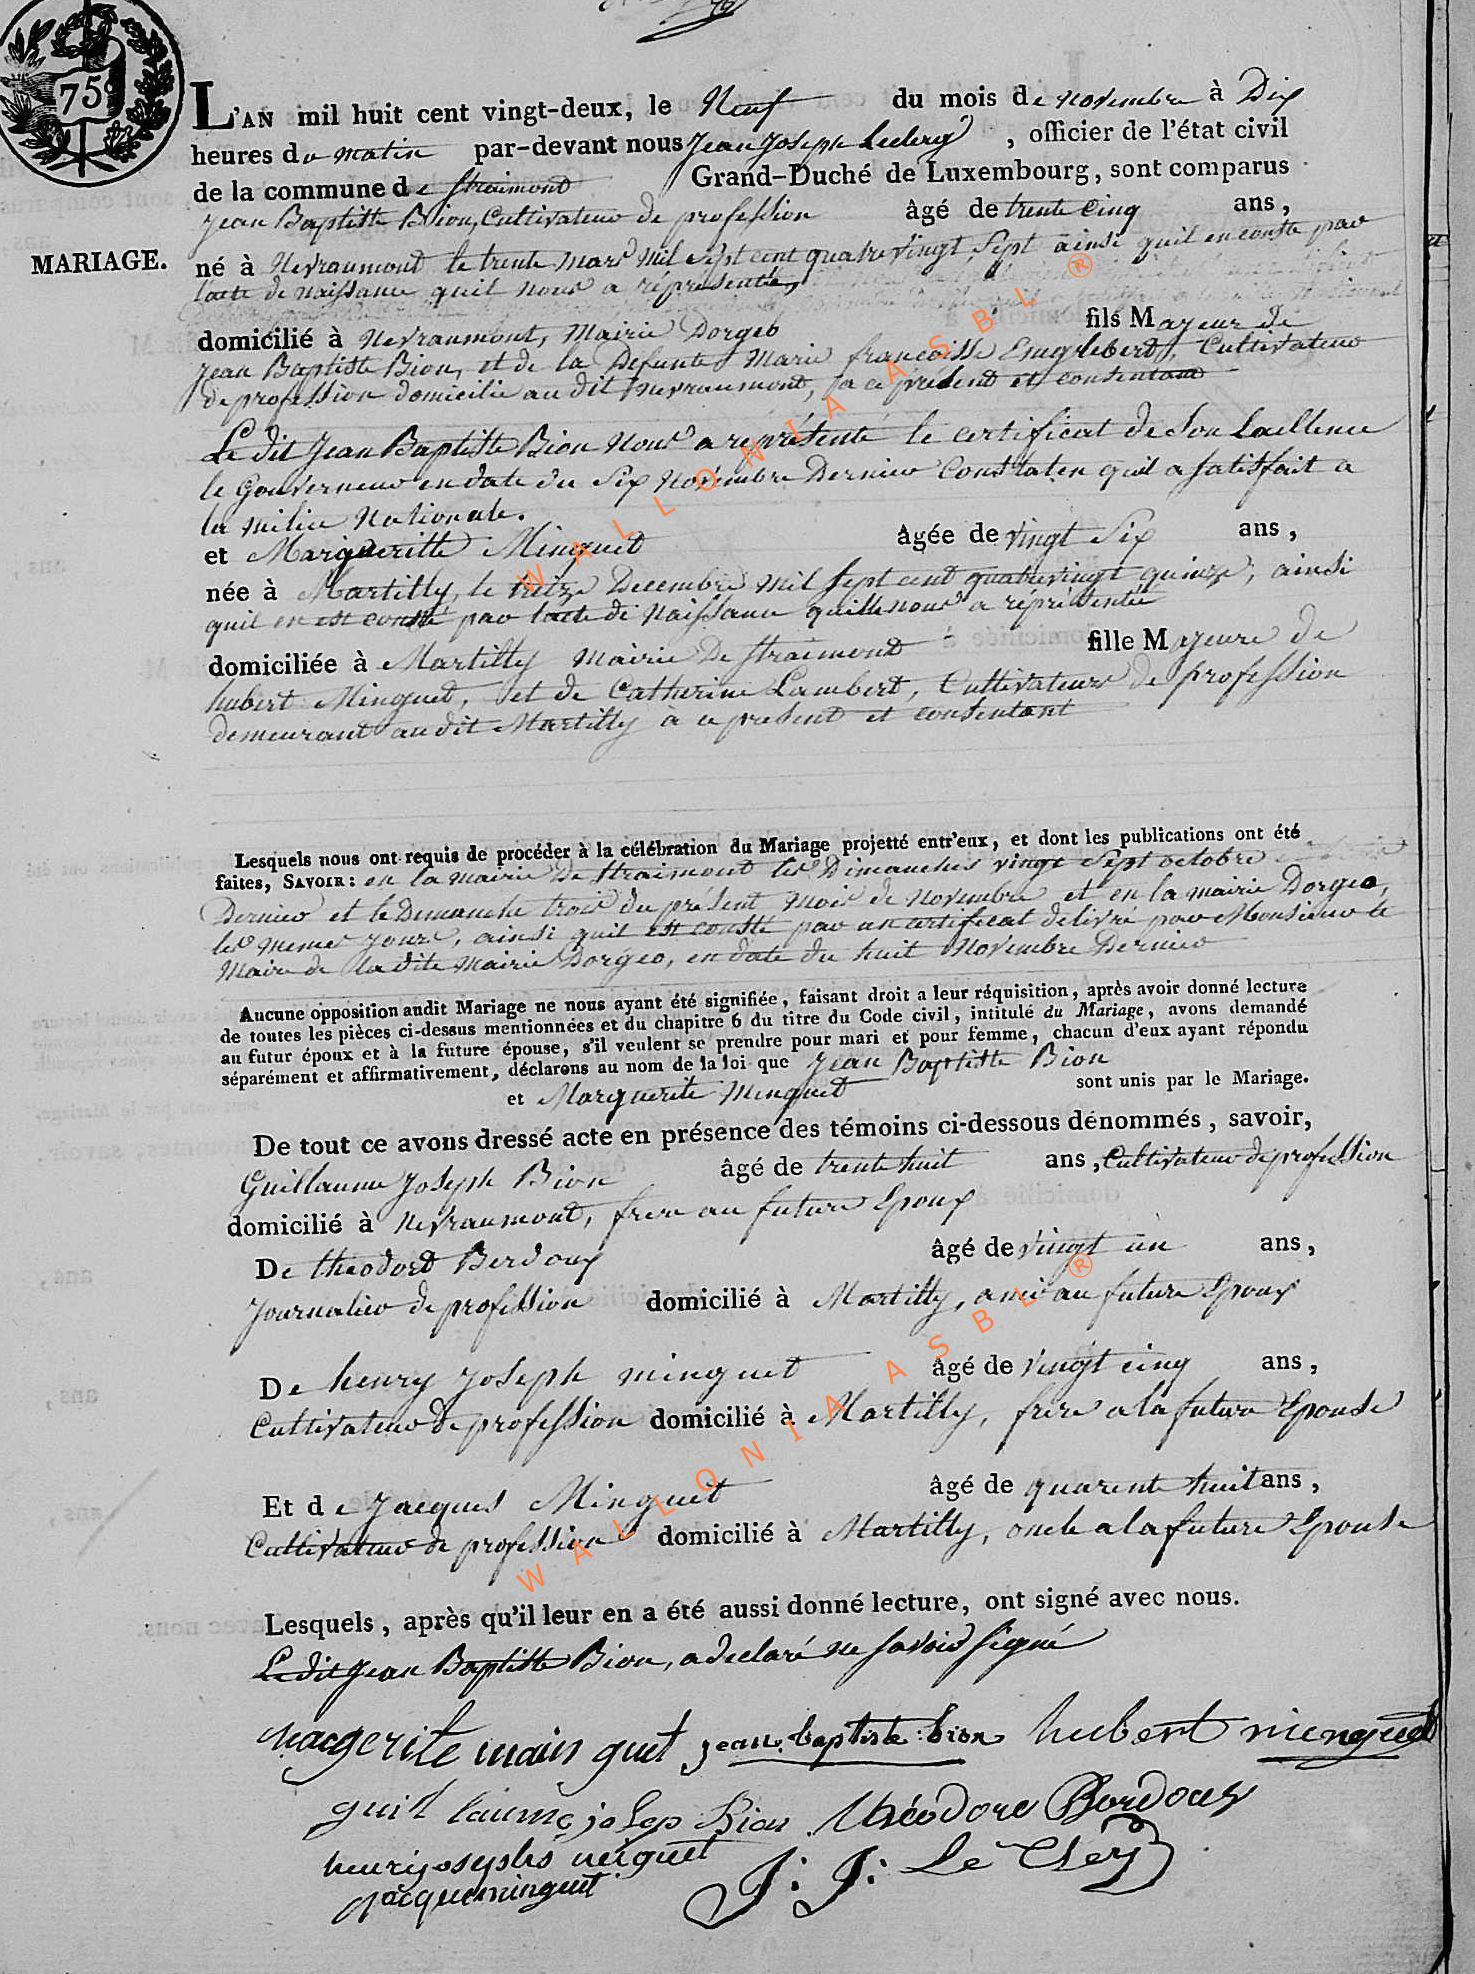 75c
L'AN mil huit cent vingt-deux, le Neuf du mois de novembre à Dix
heures du matin par-devant nous Jean Joseph Leclerq, officier de l'état civil
de la commune de Straimont Grand-Duché de Luxembourg, sont comparus
Jean Baptiste Bion, Cultivateur de profession âgé de trente cinq ans,
MARIAGE.
né à Nevraumont le trente mars mil sept cent quatrevingt sept ainsi quil en conste par
lacte de naissance quil nous a réprésentée,
domicilié à Nevraumont, Mairie Dorgeo fils Majeur de
Jean Baptiste Bion, et de la Defunte Marie francoisse Englebert, Cultivateur
de profession domicilié au dit nevraumont, a ce présent et consentant
Le dit Jean Baptiste Bion nous a représenté le certificat de Son Excellence
le Gouverneur en date du Six Novembre Dernier Constaten quil a satisfait a
la milice Nationale.
et Margueritte Minguet âgée de vingt Six ans,
née à Martilly, le treize Decembre mil sept cent quatrevingt quinze, ainsi
quil en est consté par lacte de Naissance quelle nous a répresentée
domiciliée à Martilly Mairie De Straimont fille Majeure de
hubert Minguet, et de Catherine Lambert, Cultivateurs de profession
demeurant audit Martilly à ce present et consentant
Lesquels nous ont requis de procéder à la célébration du Mariage projetté entr'eux, et dont les publications ont été
faites, SAVOIR: en la mairie De Straimont les Dimanches vingt Sept octobre
Dernier et le Dimanche trois du présent mois de Novembre et en la mairie Dorgeo,
les memes jours, ainsi quil est consté par un certificat delivré par Monsieur le
Maire de la dite Mairie Dorgeo, en date du huit Novembre Dernier
Aucune opposition audit Mariage ne nous ayant été signifiée, faisant droit a leur réquisition, après avoir donné lecture
de toutes les pièces ci-dessus mentionnées et du chapitre 6 du titre du Code civil, intitulé du Mariage, avons demandé
au futur époux et à la future épouse, s'il veulent se prendre pour mari et pour femme, chacun d'eux ayant répondu
séparément et affirmativement, déclarons au nom de la loi que Jean Baptiste Bion
et Marguerite Minguet sont unis par le Mariage.
De tout ce avons dressé acte en présence des témoins ci-dessous dénommés, savoir,
Guillaume Joseph Bion âgé de trente huit ans, Cultivateur de profession
domicilié à Nevraumont, frere au future Epoux
De théodort Berdoux âgé de vingt un ans,
Journalier de profession domicilié à Martilly, ami au future Epoux
De henry Joseph minguet âgé de vingt cinq ans,
Cultivateur de profession domicilié à Martilly, frere a la future Epouse
Et de Jacques Minguet âgé de quarente huit ans,
Cultivateur de profession domicilié à Martilly, oncle a la future Epouse
Lesquels, après qu'il leur en a été aussi donné lecture, ont signé avec nous.
Le dit Jean Baptiste Bion, a declaré ne savoir signé
margerite main guet jean baptiste bion hubert minguet
guillaume josep Bion théodore Bordoux
henrijosephs minguet J: J: Le Clerq
jacqueminguet
WALLONIA ASBL ®
WALLONIA ASBL ®